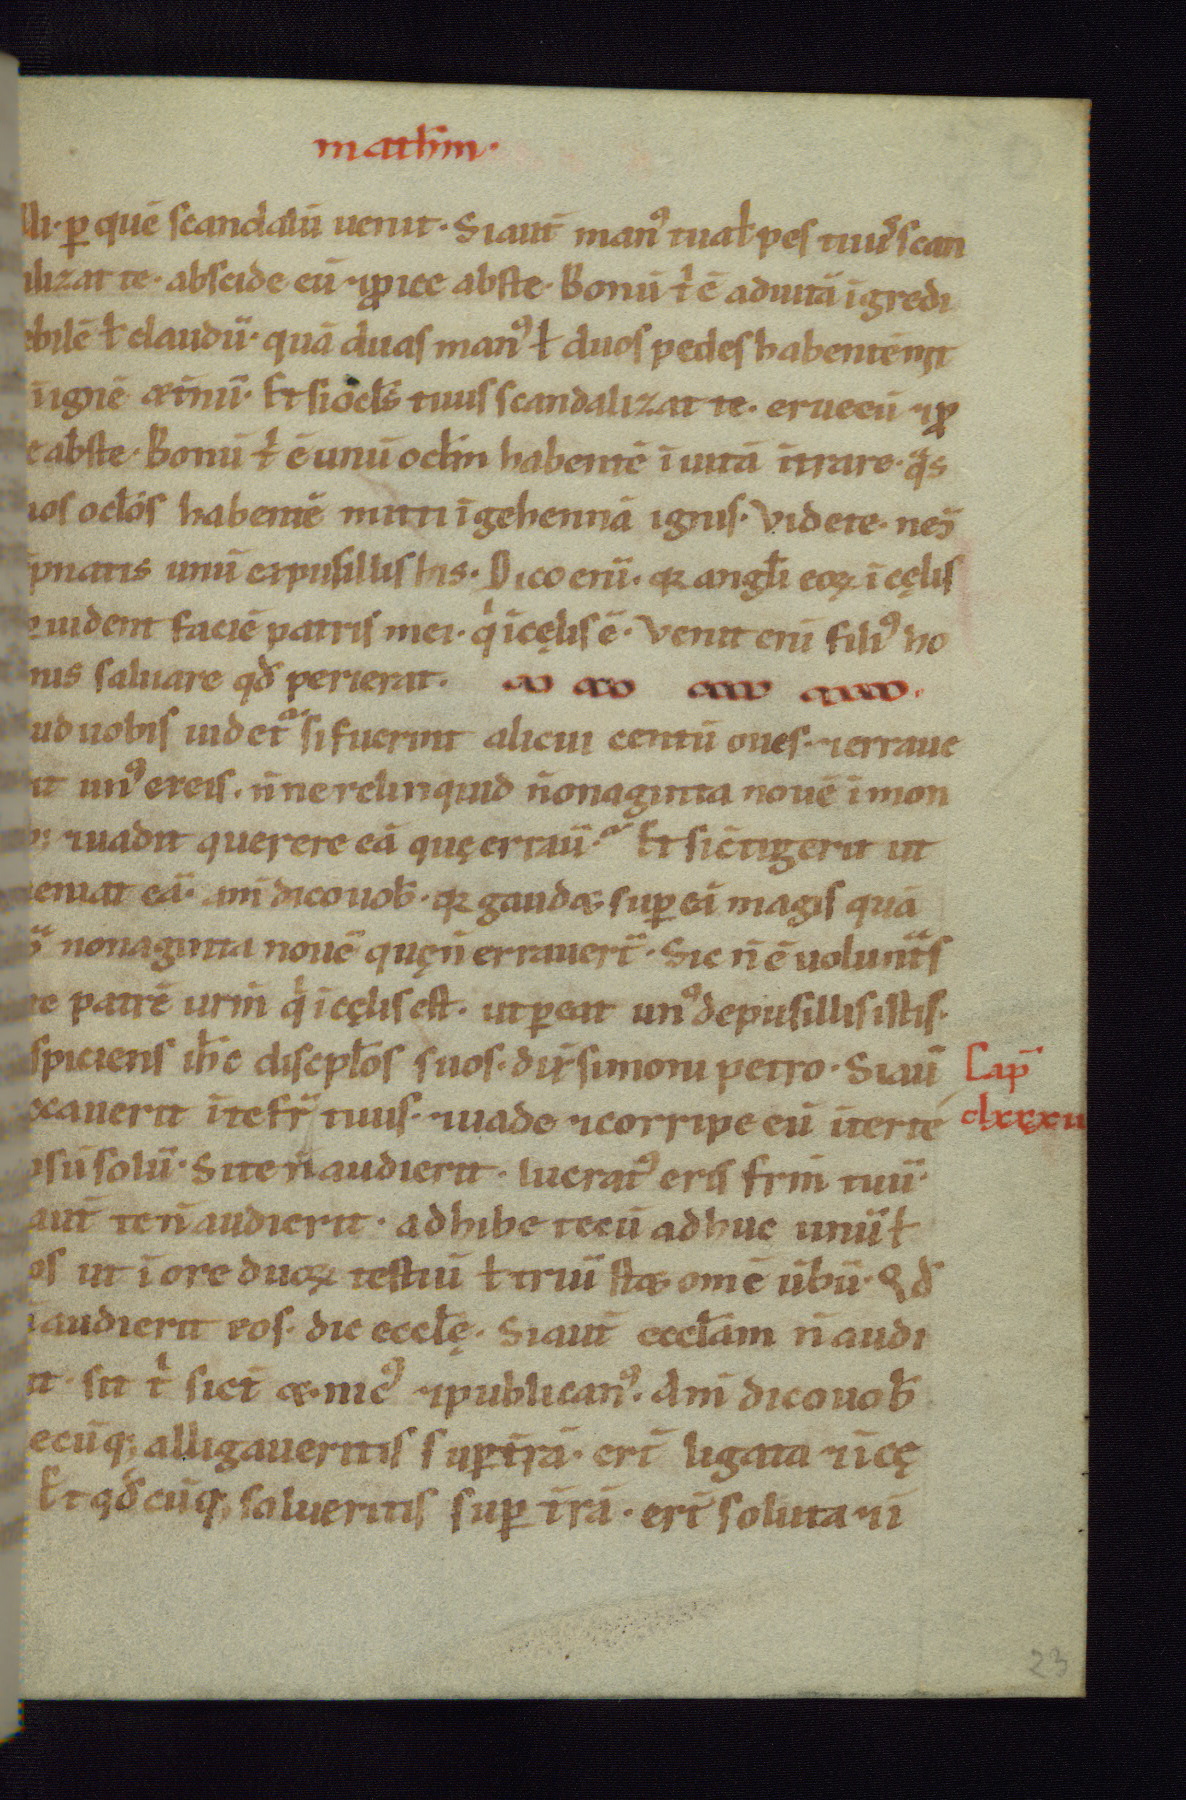 mathm·
lli· ꝑ quē scandalū uenit· Siaut̄ manꝰ tua ł pes tuus scan
lizat te· abscide eū ⁊ ꝓice abs te· Bonū t̄ ē ad uitā īgredi
ebilē ł claudū· quā duas manꝰ ł duos pedes habentē mit
ī ignē æt̄nū· Et si oc̄ls tuus scandalizat te· erue eū ⁊ ꝓ
e abs te· Bonū t̄ ē unū oc̄lm habentē ī uitā ītrare· q̄s
uos oc̄los habentē mitti ī gehennā ignis· Videte· ne ɔ̄
ēpnatis unū ex pusillis his· Dico enī· qꝛ angl̄i eoꝝ ī cęlis
uident faciē patris mei· qi ī cęlis ē· Venit eni filiꝰ ho
nis saluare qđ perierat·
ud uobis uidet̄· si fuerint alicui centū oues· ⁊ erraue
it unꝰ ex eis· n̄ne relinquid nonaginta nouē ī mon
⁊ uadit querere eā quę errau̅· Et si c̄tigerit ut
ueniat eā· am̄ dico uob̄· qꝛ gaudæ sup eā magis quā
nonaginta nouē quę n̄ errauert̄· Sic n̄ ē uolunt̄s
te patrē urm̄ qi ī cęlis est· ut ꝑeat unꝰ de pusillis istis·
spiciens ih̄c disciplōs suos· dix̄ simoni petro· Siaū
Cap̄
ccauerit ī te fr̄ tuus· ⁊ uade ⁊ corripe eū īter te
clxxxu
ipsū solū· Si te n̄ audierit· lucratꝰ eris frm̄ tuū·
aut̄ te n̄ audierit· adhibe tecū adhuc unū ł
os ut ī ore duoꝝ testiū ł triū stæ om̄e ūbū· Qđ
n̄ audierit eos· dic eccłę· Siaut̄ eccłam n̄ audi
it· sit t̄ sic̄t æ·nicꝰ ⁊ publicanꝰ· Am̄ dico uob̄
ecūq; alligaueritis sup t̄rā· er̄t ligata ⁊ ī cę
Et qđcūq; salueritis sup t̄rā· er̄t soluta ⁊ ī
23